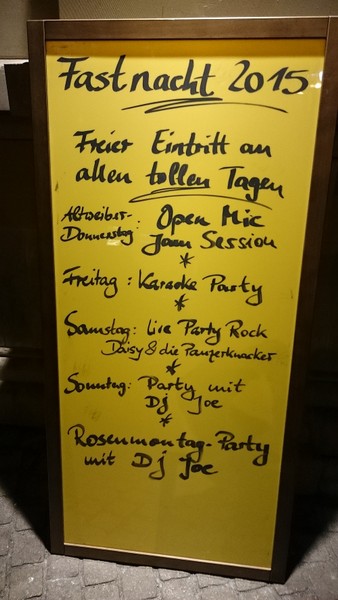 Fastnacht 2015
Freier Eintritt an
allen tollen Tagen
Altweiber-
Donnerstag : Open Mic
Jam Session
*
Freitag : Karaoke Party
*
Samstag: Live Party Rock
Daisy & die Panzerknacker
*
Sonntag: Party mit
Dj Joe
*
Rosenmontag-Party
mit Dj Joe